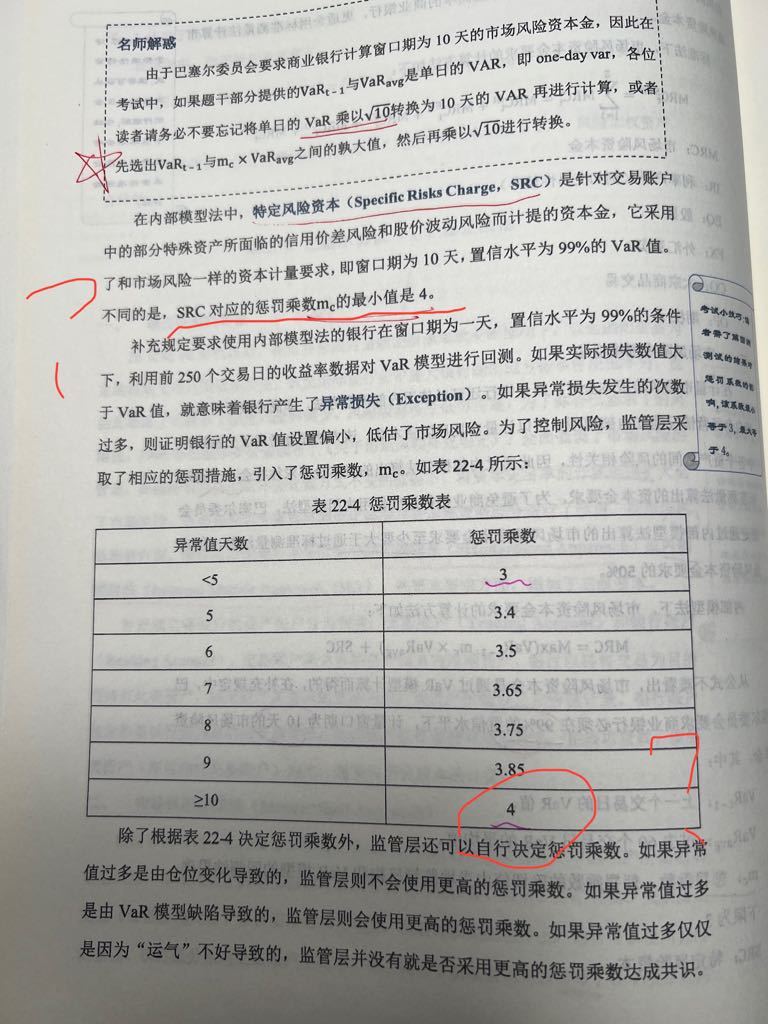 名师解惑
由于巴塞尔委员会要求商业银行计算窗口期为 10 天的市场风险资本金，因此在
考试中，如果题干部分提供的VaRt－1与VaRavg是单日的 VAR，即 one-day var，各位
读者请务必不要忘记将单日的 VaR 乘以√10转换为 10 天的 VAR 再进行计算，或者
先选出VaRt－1与mc × VaRavg之间的孰大值，然后再乘以√10进行转换。
在内部模型法中，特定风险资本（Specific Risks Charge, SRC）是针对交易账户
中的部分特殊资产所面临的信用价差风险和股价波动风险而计提的资本金，它采用
了和市场风险一样的资本计量要求，即窗口期为 10 天，置信水平为 99%的 VaR 值。
不同的是，SRC 对应的惩罚乘数mc的最小值是 4。
补充规定要求使用内部模型法的银行在窗口期为一天，置信水平为 99%的条件
下，利用前 250 个交易日的收益率数据对 VaR 模型进行回测。如果实际损失数值大
于 VaR 值，就意味着银行产生了异常损失（Exception）。如果异常损失发生的次数
过多，则证明银行的 VaR 值设置偏小，低估了市场风险。为了控制风险，监管层采
取了相应的惩罚措施，引入了惩罚乘数，mc。如表 22-4 所示：
考试小技巧：
等于 3，最大等
于 4。
表 22-4 惩罚乘数表
异常值天数 惩罚乘数
<5 3
5 3.4
6 3.5
7 3.65
8 3.75
9 3.85
≥10 4
除了根据表 22-4 决定惩罚乘数外，监管层还可以自行决定惩罚乘数。如果异常
值过多是由仓位变化导致的，监管层则不会使用更高的惩罚乘数。如果异常值过多
是由 VaR 模型缺陷导致的，监管层则会使用更高的惩罚乘数。如果异常值过多仅仅
是因为“运气”不好导致的，监管层并没有就是否采用更高的惩罚乘数达成共识。